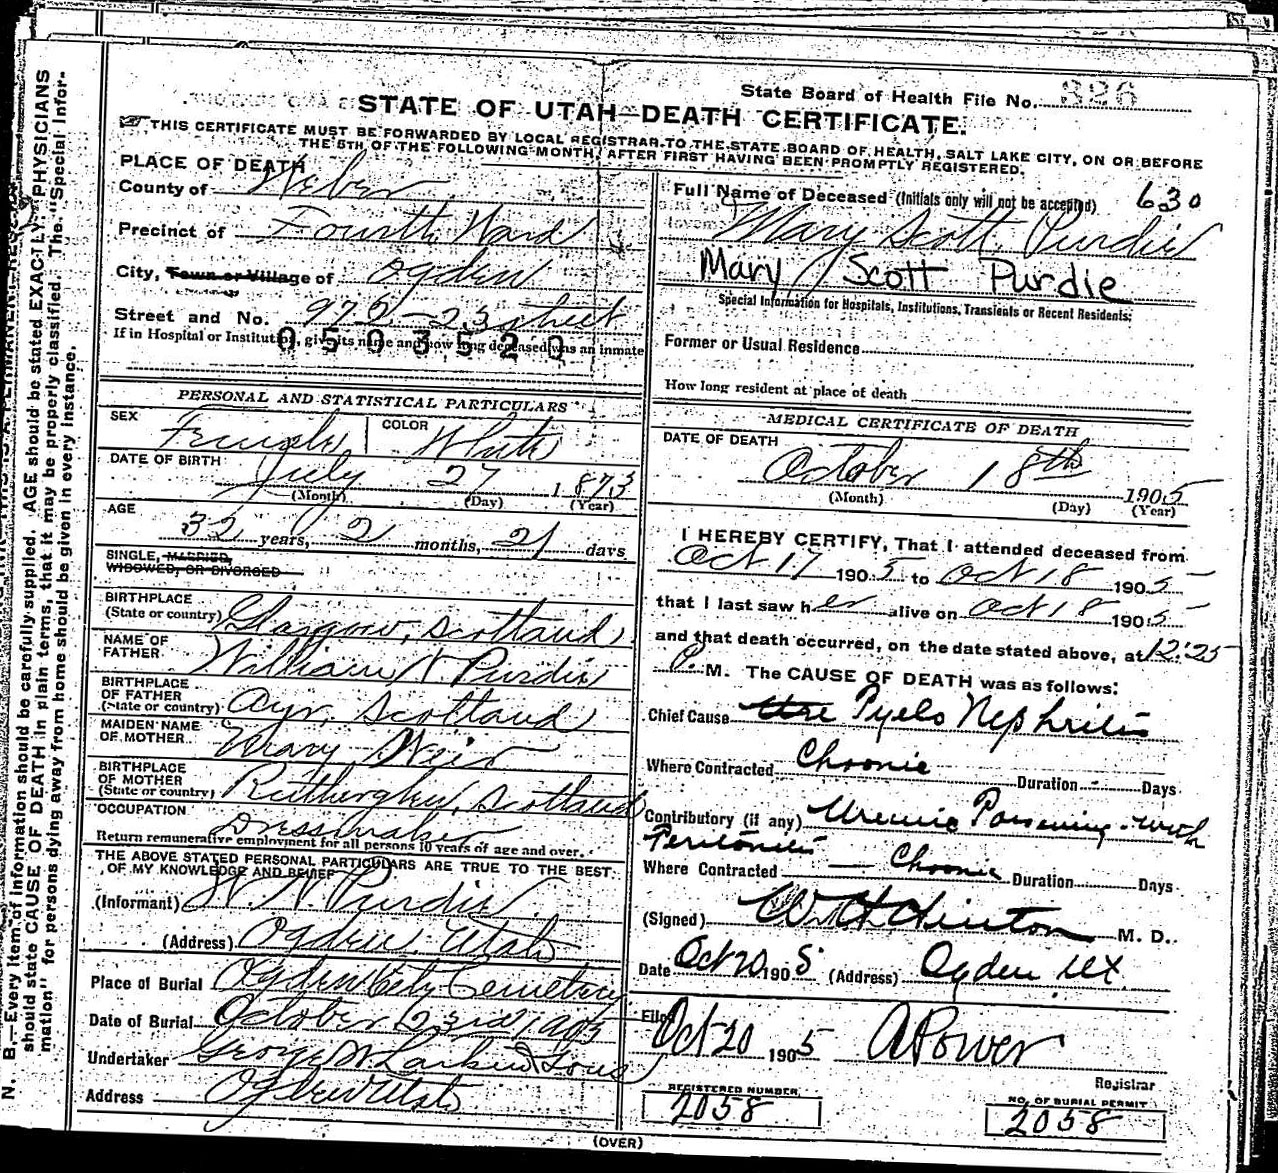 State Board of Health File No. 326
STATE OF UTAH—DEATH CERTIFICATE.
THIS CERTIFICATE MUST BE FORWARDED BY LOCAL REGISTRAR TO THE STATE BOARD OF HEALTH, SALT LAKE CITY, ON OR BEFORE
THE 5TH OF THE FOLLOWING MONTH, AFTER FIRST HAVING BEEN PROMPTLY REGISTERED.
PLACE OF DEATH
County of Weber
Precinct of Fourth Ward
City, Town or Village of Ogden
Street and No. 975 - 23 Street
If in Hospital or Institution, give its name and how long deceased was an inmate
0503520
PERSONAL AND STATISTICAL PARTICULARS
SEX Female COLOR White
DATE OF BIRTH July 27 1873
(Month) (Day) (Year)
AGE 32 years, 2 months, 21 days
SINGLE, MARRIED,
WIDOWED, OR DIVORCED
BIRTHPLACE
(State or country) Glasgow, Scotland
NAME OF
FATHER William N Purdie
BIRTHPLACE
OF FATHER
(State or country) Ayr, Scotland
MAIDEN NAME
OF MOTHER Mary Weir
BIRTHPLACE
OF MOTHER
(State or country) Rutherglen, Scotland
OCCUPATION Dressmaker
Return remunerative employment for all persons 10 years of age and over.
THE ABOVE STATED PERSONAL PARTICULARS ARE TRUE TO THE BEST
OF MY KNOWLEDGE AND BELIEF
(Informant) W. N. Purdie
(Address) Ogden, Utah
Place of Burial Ogden City Cemetery
Date of Burial October 23rd, 1905
Undertaker George W Larkin & Sons
Address Ogden Utah
630
Full Name of Deceased (Initials only will not be accepted)
Mary Scott Purdie
Mary Scott Purdie
Special Information for Hospitals, Institutions, Transients or Recent Residents:
Former or Usual Residence
How long resident at place of death
MEDICAL CERTIFICATE OF DEATH
DATE OF DEATH
October 18th 1905
(Month) (Day) (Year)
I HEREBY CERTIFY, That I attended deceased from
Oct 17 1905 to Oct 18 1905
that I last saw her alive on Oct 18 1905
and that death occurred, on the date stated above, at 12:25
P. M. The CAUSE OF DEATH was as follows:
Chief Cause Pyelo Nephritis
Where Contracted Chronic Duration Days
Contributory (if any) Uremic Poisoning with
Peritonitis
Where Contracted — Chronic Duration Days
(Signed) M. D.
Date Oct 20 1905 (Address) Ogden Ut
Filed
Oct 20 1905 A Power
Registrar
REGISTERED NUMBER
2058
NO. OF BURIAL PERMIT
2058
(OVER)
N. B.—Every item of information should be carefully supplied. AGE should be stated EXACTLY. PHYSICIANS
should state CAUSE OF DEATH in plain terms, that it may be properly classified. The "Special Infor-
mation" for persons dying away from home should be given in every instance.